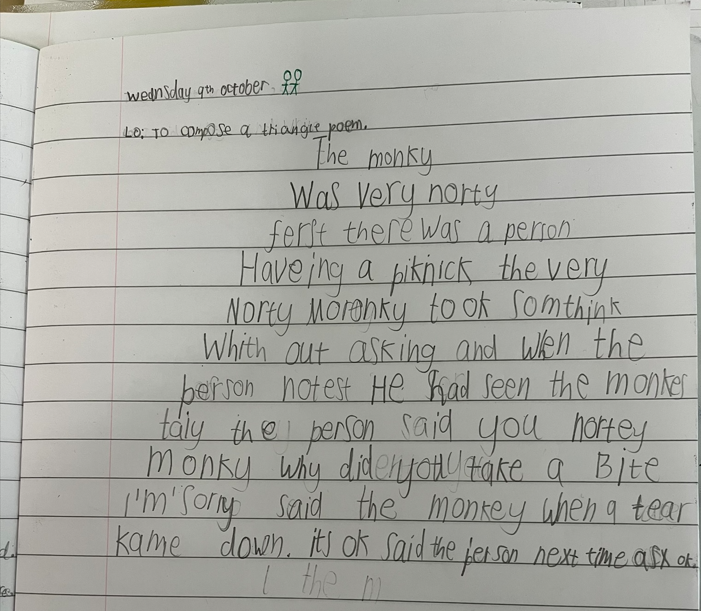 wednsday 9th october.
LO: To compose a triangle poem.
The monky
Was very norty
ferst there was a person
Haveing a piknick the very
Norty Moronky took somthink
Whith out asking and when the
person notest He had seen the monkes
taiy the person said you nortey
monky why did you take a Bite
I'm' Sorry said the monkey when a tear
kame down. its ok said the person next time ask ok.
I the m